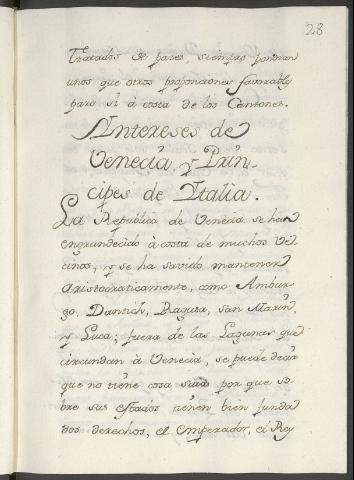 28
Tratados de pazes, siempre sacaran
unos que otros proporciones favorables
para sí à costa de los Cantones.
Intereses de
Venecia, y Prin-
cipes de Italia.
La Republica de Venecia se ha
engrandecido à costa de muchos Ve-
cinos, y se ha savido mantener
Aristocraticamente, como Ambur-
go, Dantich, Raguza, San Marin,
y Luca; fuera de las Lagunas que
circundan à Venecia, se puede decir
que no tiene cosa suia por que so-
bre sus estados tienen bien funda
dos derechos, el Emperador, el Rey